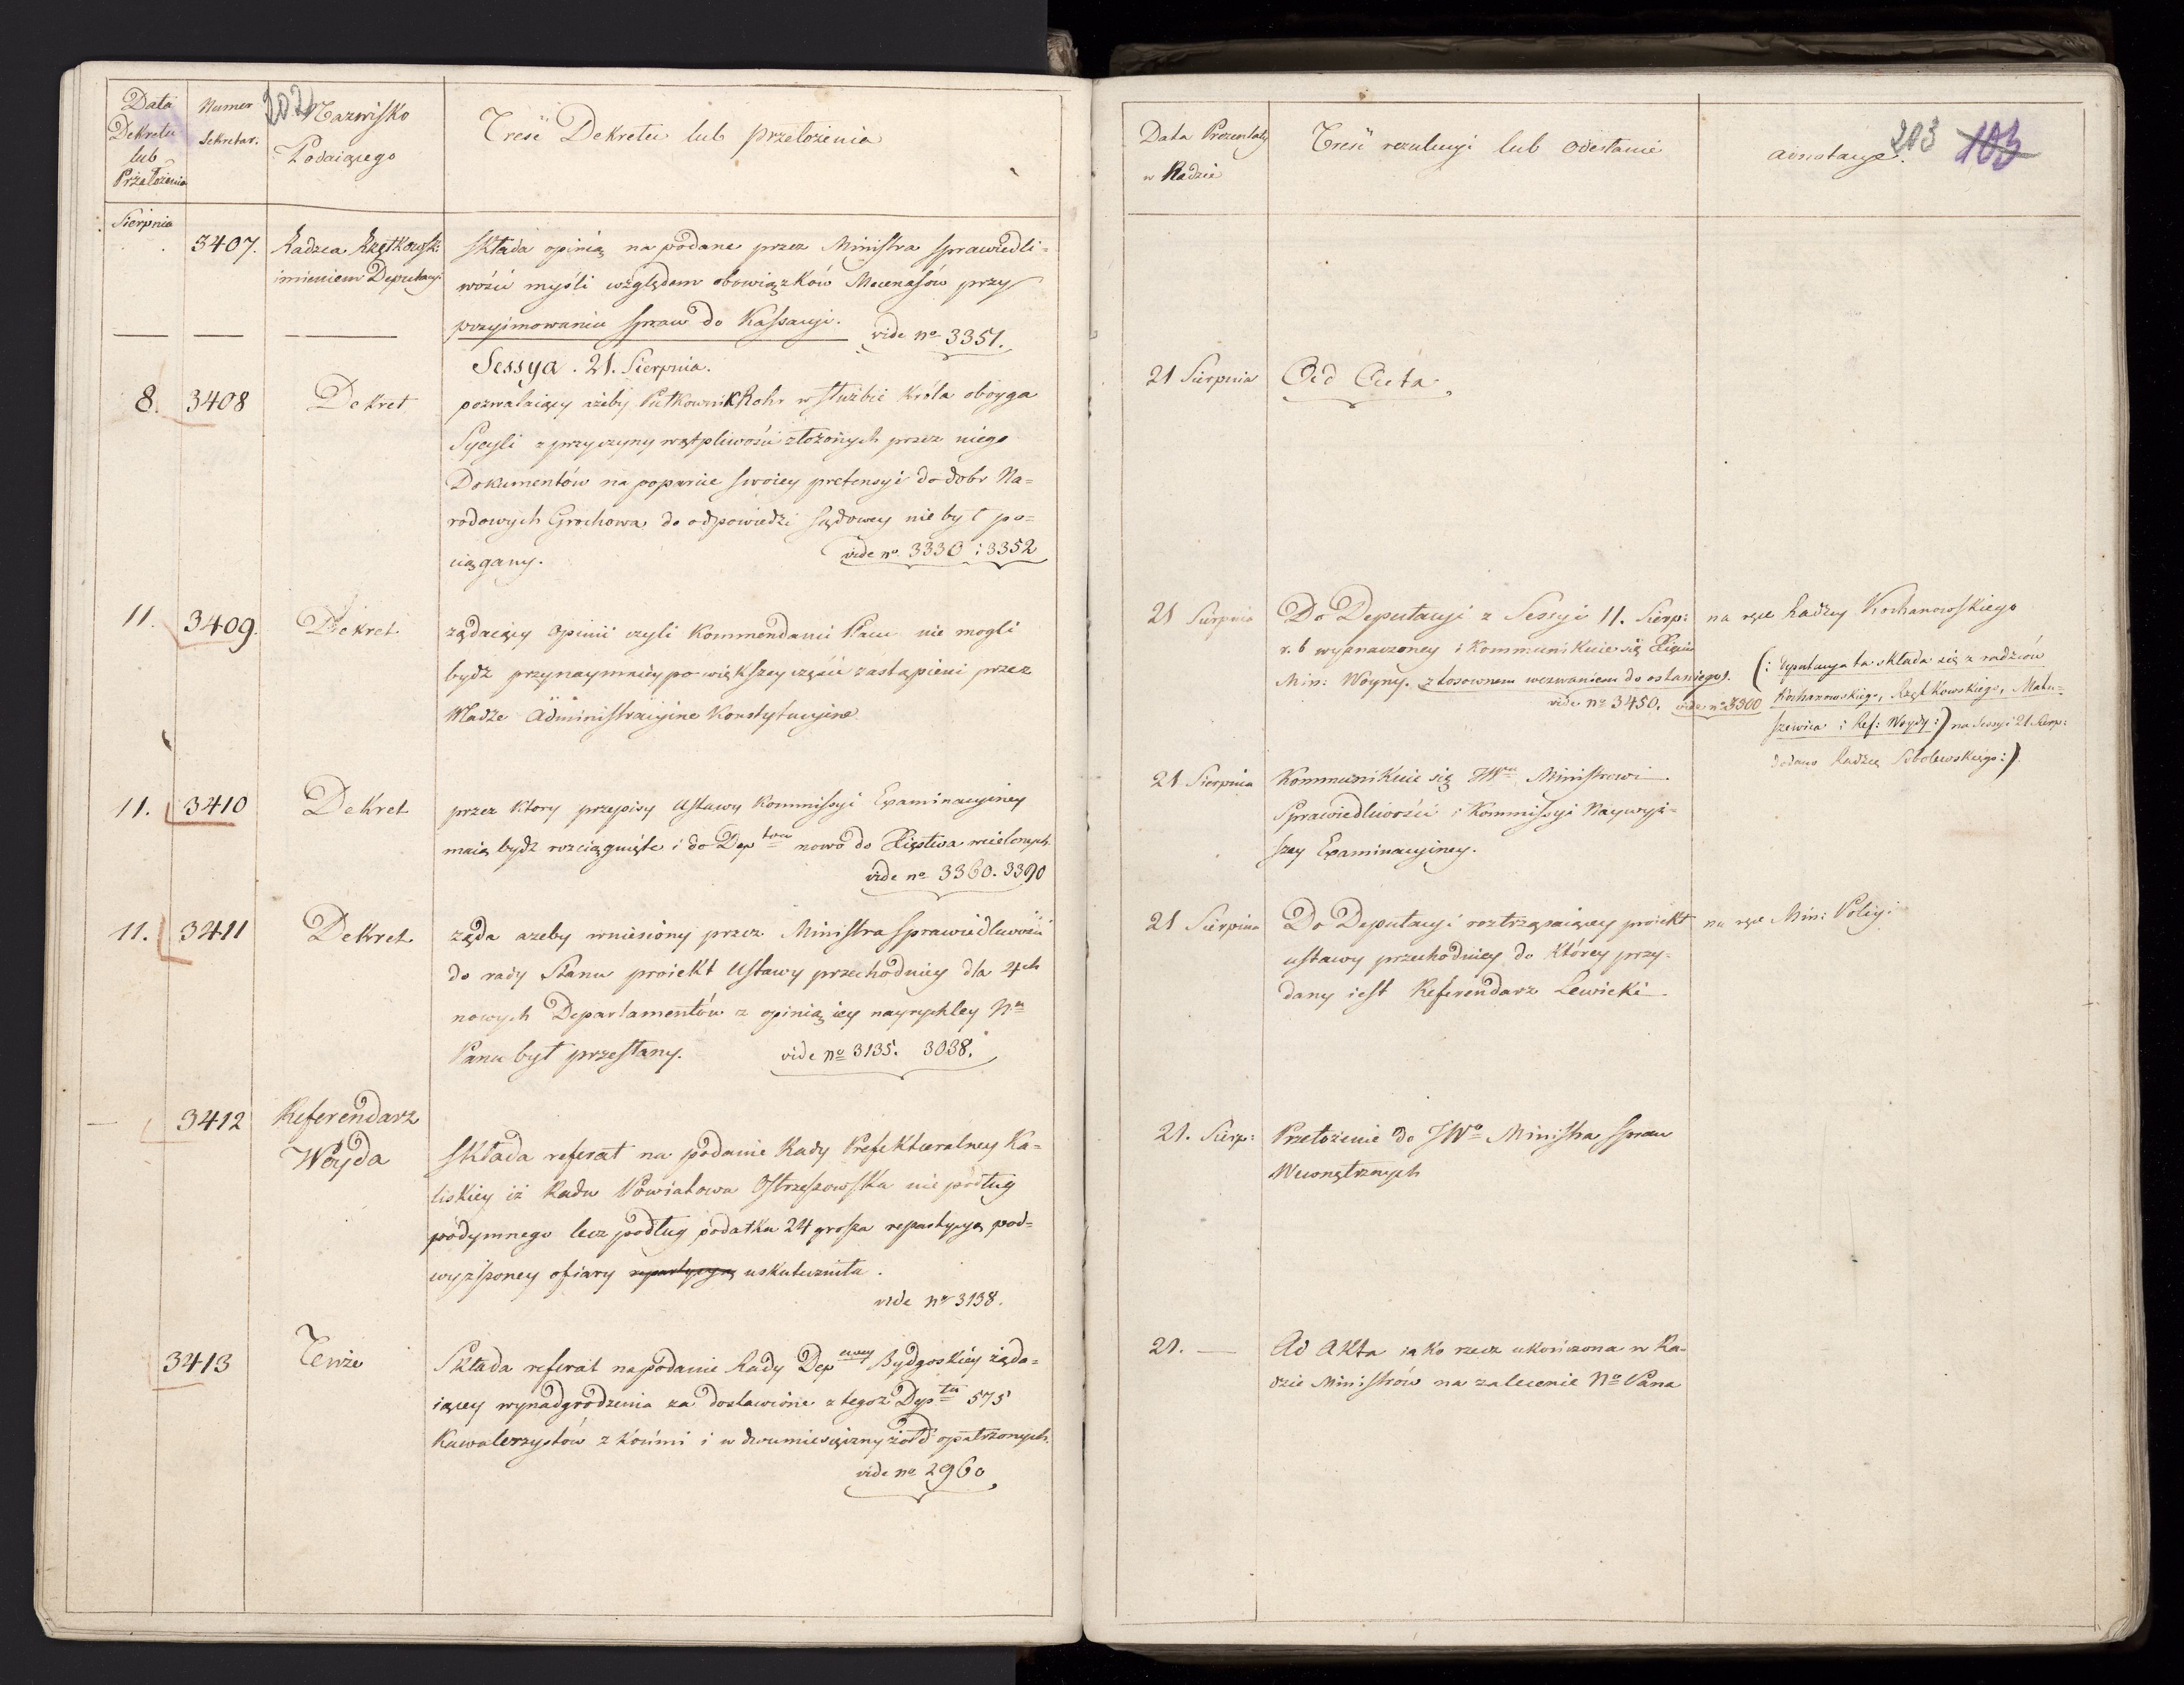 Data
Dekretu
lub
Przełożenia
Numer
Sekretar.
202
Nazwisko
Podaiącego
Treść Dekretu lub przełożenia
Sierpnia
3407.
Radzca Rzętkowsk:
imieniem Deputacyi
składa opinią na podane przez Ministra sprawiedli=
wości myśli względem obowiązków Mecenasów przy
przyimowaniu spraw do Kassacyi.
vide no 3351.
Sessya. 21. Sierpnia.
8.
3408
Dekret
pozwalaiący ażeby Pułkownik Rohr w służbie Króla oboyga
Sycyli z przyczyny wątpliwości złożonych przez niego
Dokumentów na poparcie swoiey pretensyi do dobr Na=
rodowych Grochowa do odpowiedzi sądowey nie był po=
ciągany.
vide no. 3330 i 3352
11.
3409.
Dekret
żądaiący opinii czyli Kommendanci Placu nie mogli
bydź przynaymniey po większey części zastąpieni przez
Władze Administracyine Konstytucyine
11.
3410
Dekret
przez ktory przepisy Ustawy Kommissyi Examinacyiney
maią bydź rozciągnięte i do Deptow nowo do Xięstwa wcielonych.
vide no 3360. 3390
11.
3411
Dekret
żąda ażeby wniesiony przez Ministra sprawiedliwości
do rady Stanu proiekt Ustawy przechodniey dla 4ch
nowych Departamentów z opinią iey nayrychley Nu
Panu był przesłany.
vide no 3135. 3038.
3412
Referendarz
Woyda
składa referat na podanie Rady Prefekturalney Ka=
liskiey iż Rada Powiatowa Ostrzeszowska nie podług
podymnego lecz podług podatku 24 grosza repartycyą pod=
wyższoney ofiary repartycyą uskuteczniła.
vide no 3138.
3413
Tenże
Składa referat na podanie Rady Depowey Bydgoskiey żąda=
iącey wynadgrodzenia za dostawione z tegoż Deptu 575
Kawalerzystów z końmi i w dwumiesięczny żołd opatrzonych.
vide no 2960
Data Prezentaty
w Radzie
Treść rezolucyi lub odesłanie
adnotacye.
203
103
21 Sierpnia
Ad Acta
21 Sierpnia
Do Deputacyi z Sessyi 11. Sierp:
r. b wyznaczoney i Kommunikuie się Xięciu
Min: Woyny. z stosownem wezwaniem do ostaniego.
vide no 3450. vide no 3300
na ręce Radzcy Kochanowskiego
(: deputacya ta składa się z radzców
Kochanowskiego, Rzętkowskiego, Matu=
szewica i Ref: Woydy :) na Sessyi 21 Sierp:
dodano Radzcę Sobolewskiego :)
21 Sierpnia
Kommunikuie się JWu Ministrowi
Sprawiedliwości i Kommissyi Naywyż=
szey Examinacyiney.
21 Sierpnia
Do Deputacyi roztrząsaiącey proiekt
ustawy przechodniey do którey przy=
dany iest Referendarz Lewicki
na ręce Min: Policyi
21. Sierp:
Przełożenie do JWo Ministra spraw
Wewnętrznych
21. —
Ad Akta iako rzecz ukończona w Ra=
dzie Ministrów na zalecenie No Pana